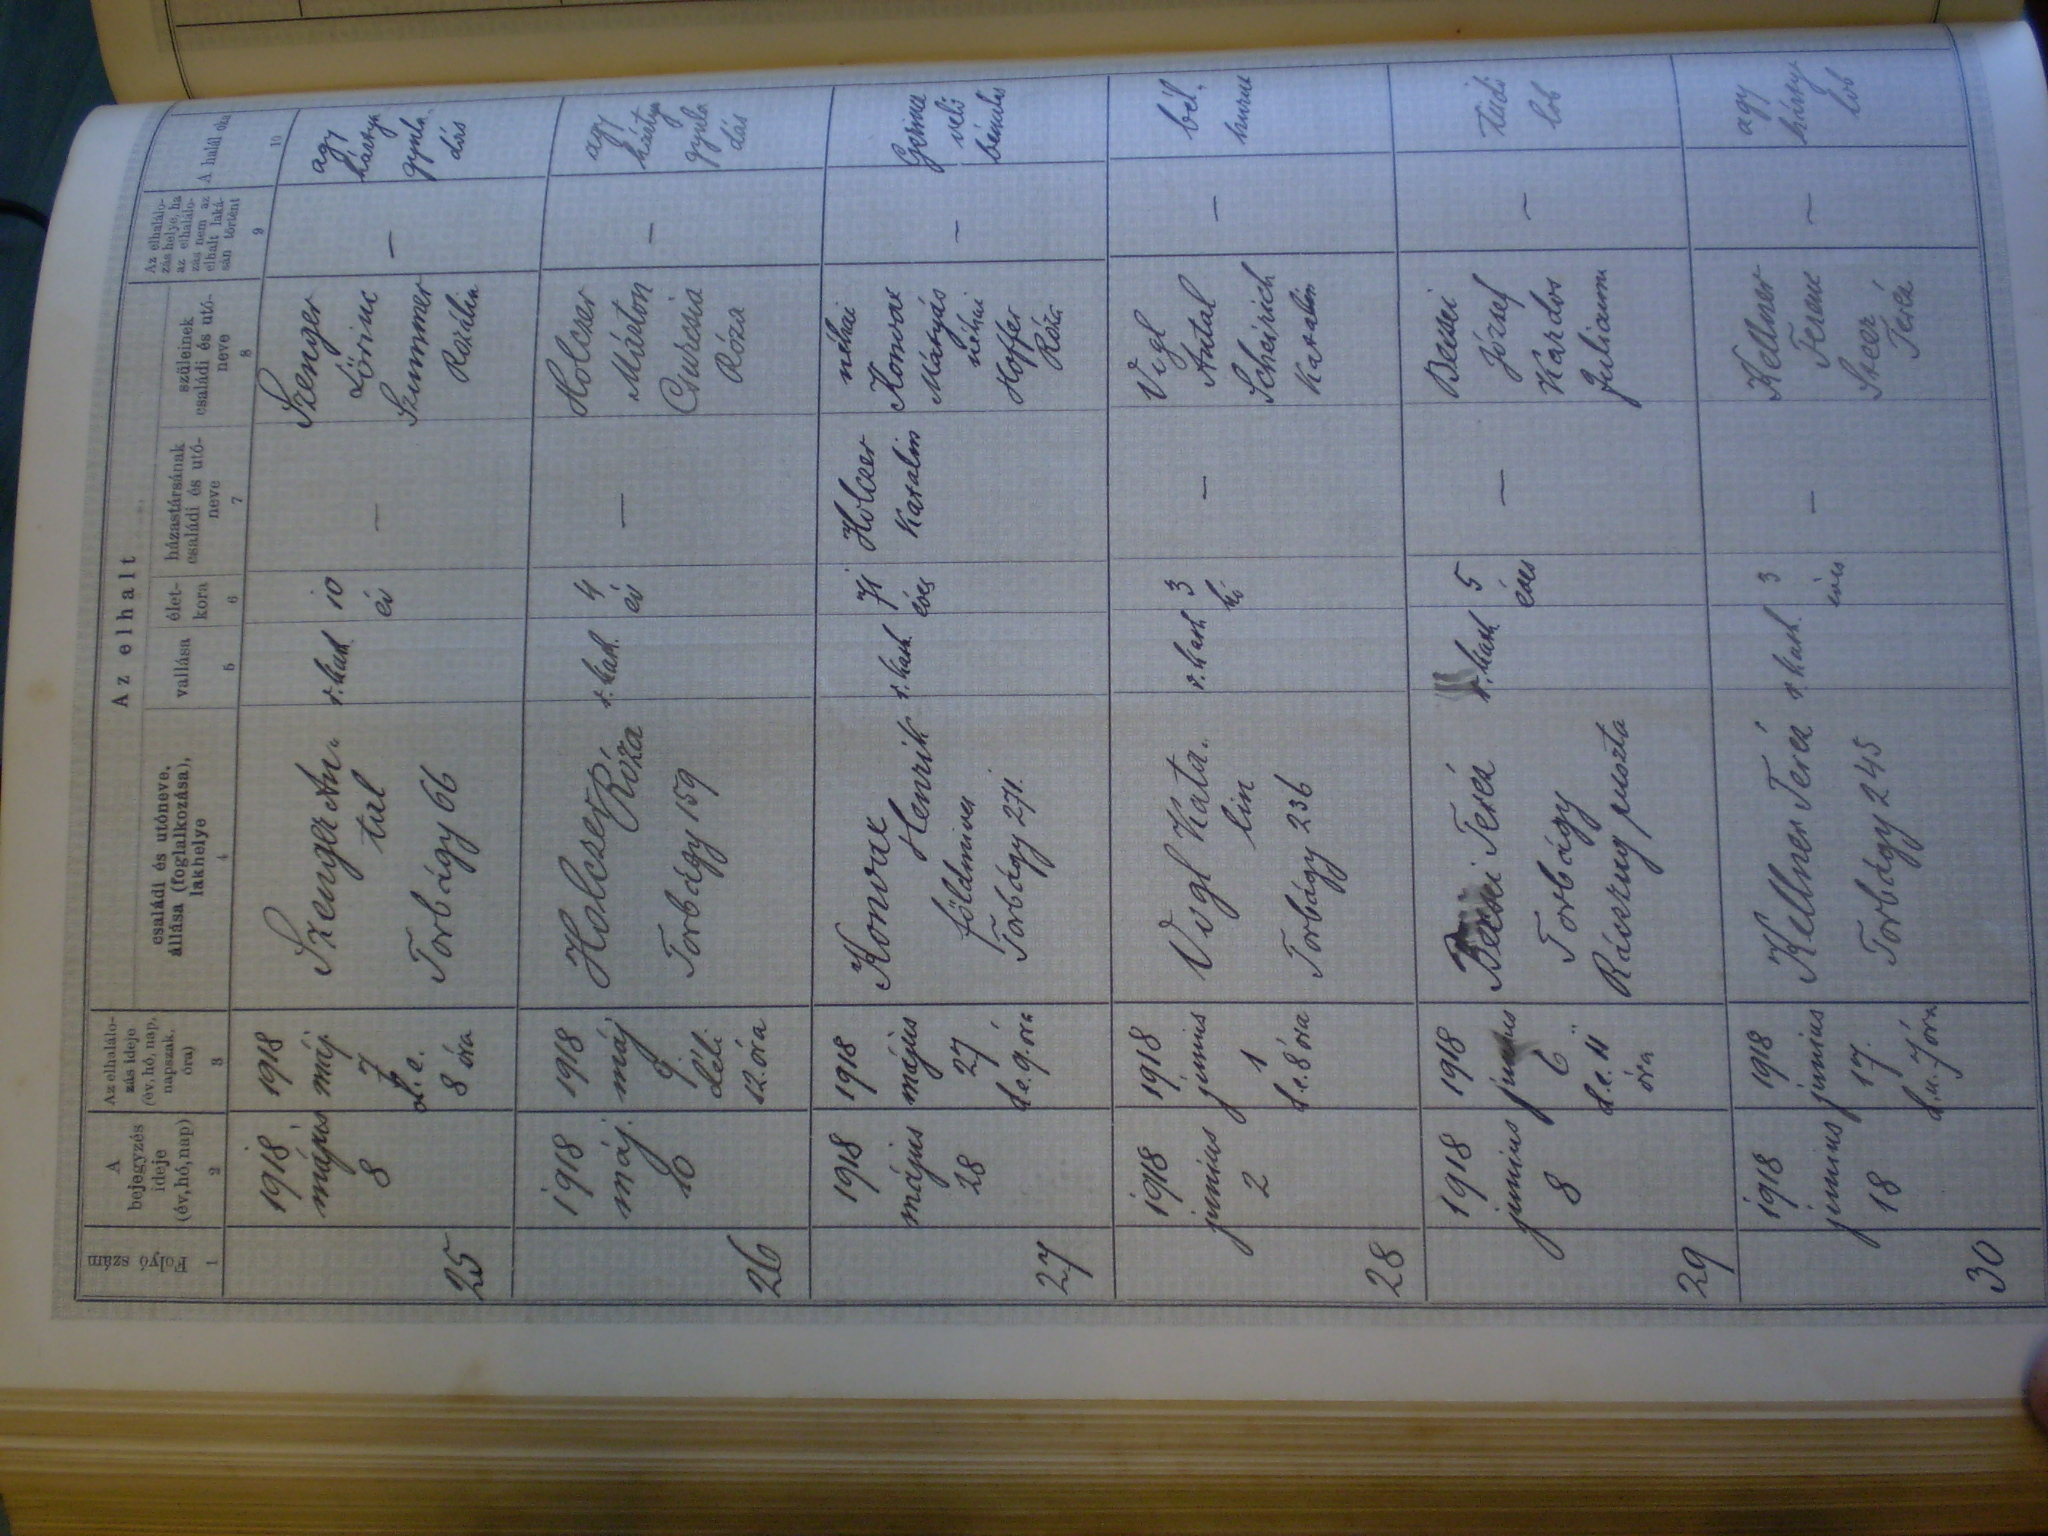 Az elhalt
Folyó szám
A bejegyzés ideje (év, hó, nap)
Az elhalálo-
zás ideje
(év, hó, nap,
napszak,
óra)
családi és utóneve,
állása (foglalkozása),
lakhelye
vallása
élet-
kora
házastársának
családi és utó-
neve
szüleinek
családi és utó-
neve
Az elhalálo-
zás helye, ha
az elhalálo-
zás nem az
elhalt laká-
sán történt
A halál oka
1 2 3 4 5 6 7 8 9 10
25
1918
május
8
1918
máj.
7
d. e.
8 óra
Szenger An
tal
Torbágy 66
r. kath.
10
év
—
Szenger
Lőrinc
Szummer
Rozália
—
agy
hártya
gyula-
dás
26
1918
máj.
10
1918
máj.
9
déli
12. óra
Holczer Róza
Torbágy 159
r. kath.
4
év
—
Holczer
Márton
Róza
—
agy
hártya
gyula
dás
27
1918
május
28
1918
május
27
d. e. 9. óra
Konrax
Henrik
földmives
Torbágy 271.
r. kath.
71
éves
Holczer
Katalin
néhai
Konrax
Mátyás
néhai
Hoffer
Róza
—
Gerinc
velő
bénulás
28
1918
junius
2
1918
junius
1
d. e. 8 óra
Vogl Kata-
lin
Torbágy 236
r. kath
3
hó
—
Vogl
Antal
Scheirich
Katalin
—
bél-
hurut
29
1918
junius
8
1918
junius
6
d. e. 11
óra
Teréz
Torbágy
puszta
r. kath.
5
éves
—
József
Kardos
Julianna
—
tüdő
lob
30
1918
junius
18
1918
junius
17.
d. u. 7 óra
Kellner Teréz
Torbágy 245
r. kath.
3
éves
—
Kellner
Ferenc
Teréz
—
agy
hártya
lob